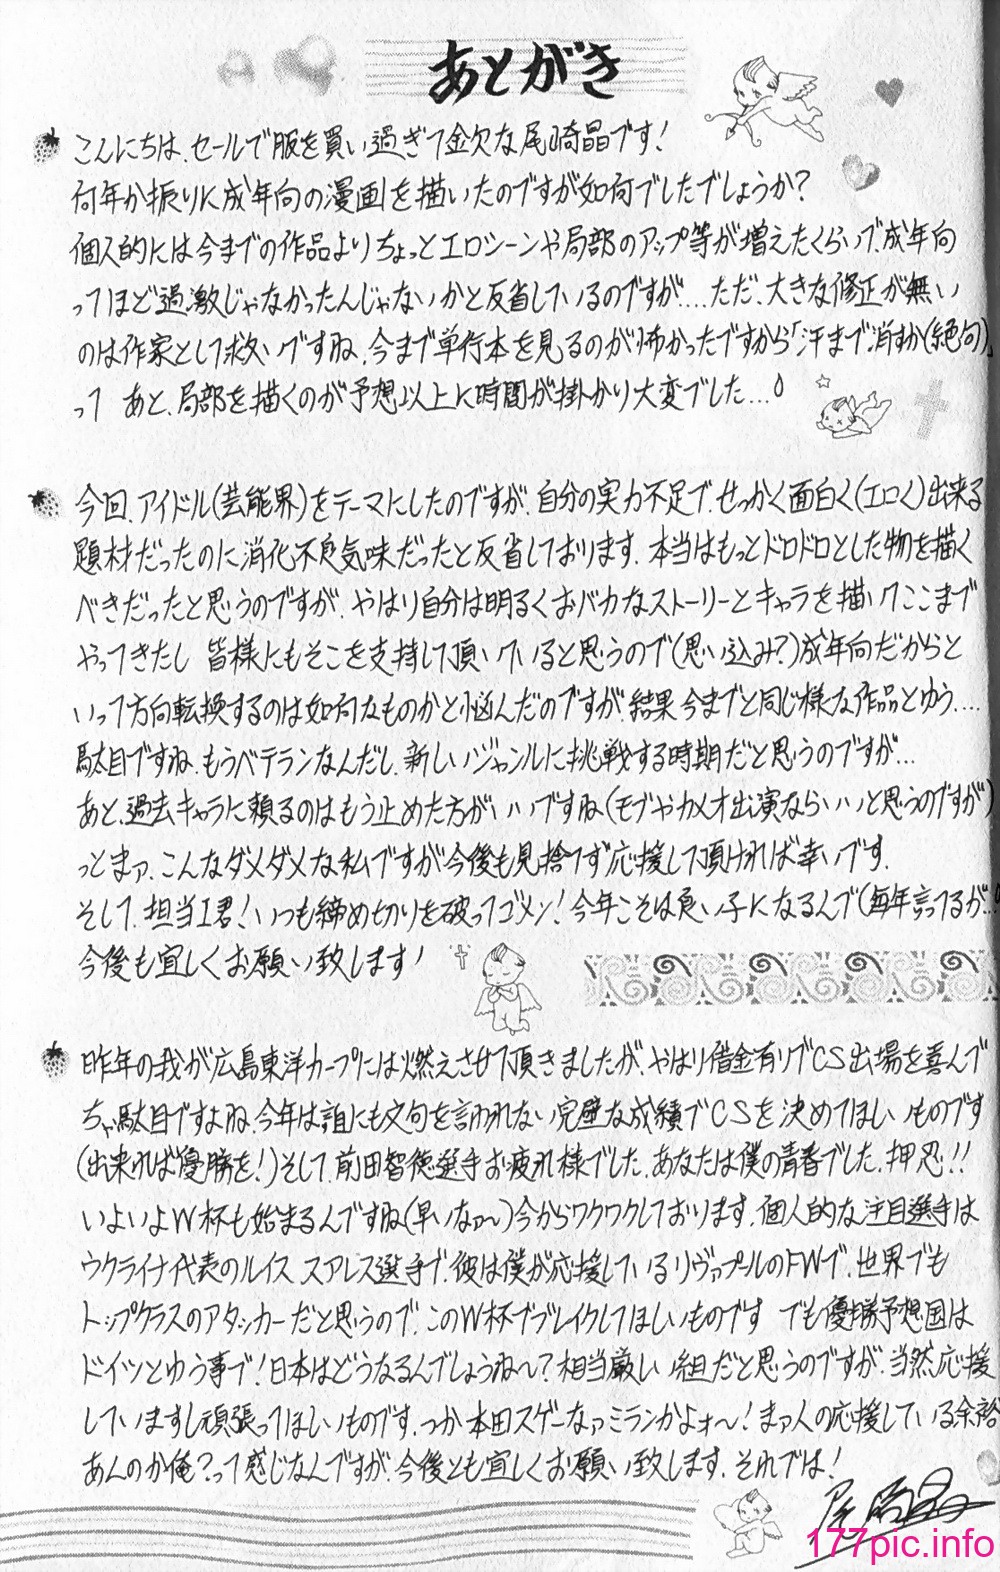 あとがき
こんにちは、セールで服を買い過ぎて金欠な尾崎晶です!
何年か振りに成年向の漫画を描いたのですが如何でしたでしょうか?
個人的には今までの作品よりちょっとエロシーンや局部のアップ等が増えたくらいで、成年向
ってほど過激じゃなかったんじゃないかと反省しているのですが…ただ、大きな修正が無い
のは作家として救いですね、今まで単行本を見るのが怖かったですから「汗まで消すか(絶句)」
って あと、局部を描くのが予想以上に時間が掛かり大変でした…
今回、アイドル(芸能界)をテーマにしたのですが、自分の実力不足で、せっかく面白く(エロく)出来る
題材だったのに消化不良気味だったと反省しております、本当はもっとドロドロとした物を描く
べきだったと思うのですが、やはり自分は明るくおバカなストーリーとキャラを描いてここまで
やってきたし 皆様にもそこを支持して頂いていると思うので(思い込み?)成年向だからと
いって方向転換するのは如何なものかと悩んだのですが、結果今までと同じ様な作品とゆう…
駄目ですね、もうベテランなんだし、新しいジャンルに挑戦する時期だと思うのですが…
あと、過去キャラに頼るのはもう止めた方がいいですね(モブやカメオ出演ならいいと思うのですが)
っとまァ、こんなダメダメな私ですが今後も見捨てず応援して頂ければ幸いです、
そして、担当I君!いつも締め切りを破ってゴメン!今年こそは良い子になるんで(毎年言ってるが…
今後も宜しくお願い致します!
昨年の我が広島東洋カープには燃えさせて頂きましたが、やはり借金有りでCS出場を喜んで
ちゃ駄目ですよね、今年は誰にも文句を言われない完璧な成績でCSを決めてほしいものです
(出来れば優勝を!)そして、前田智徳選手お疲れ様でした、あなたは僕の青春でした、押忍!!
いよいよW杯も始まるんですね(早いなァ〜)今からワクワクしております、個人的な注目選手は
ウクライナ代表のルイス スアレス選手で、彼は僕が応援しているリヴァプールのFWで、世界でも
トップクラスのアタッカーだと思うので、このW杯でブレイクしてほしいものです でも優勝予想国は
ドイツとゆう事で!日本はどうなるんでしょうね〜?相当厳しい組だと思うのですが、当然、応援
していますし頑張ってほしいものです、つか本田スゲーなァミランかよォ〜!まァ人の応援している余裕
あんのか俺?って感じなんですが、今後とも宜しくお願い致します、それでは!
尾崎晶
177pic.info